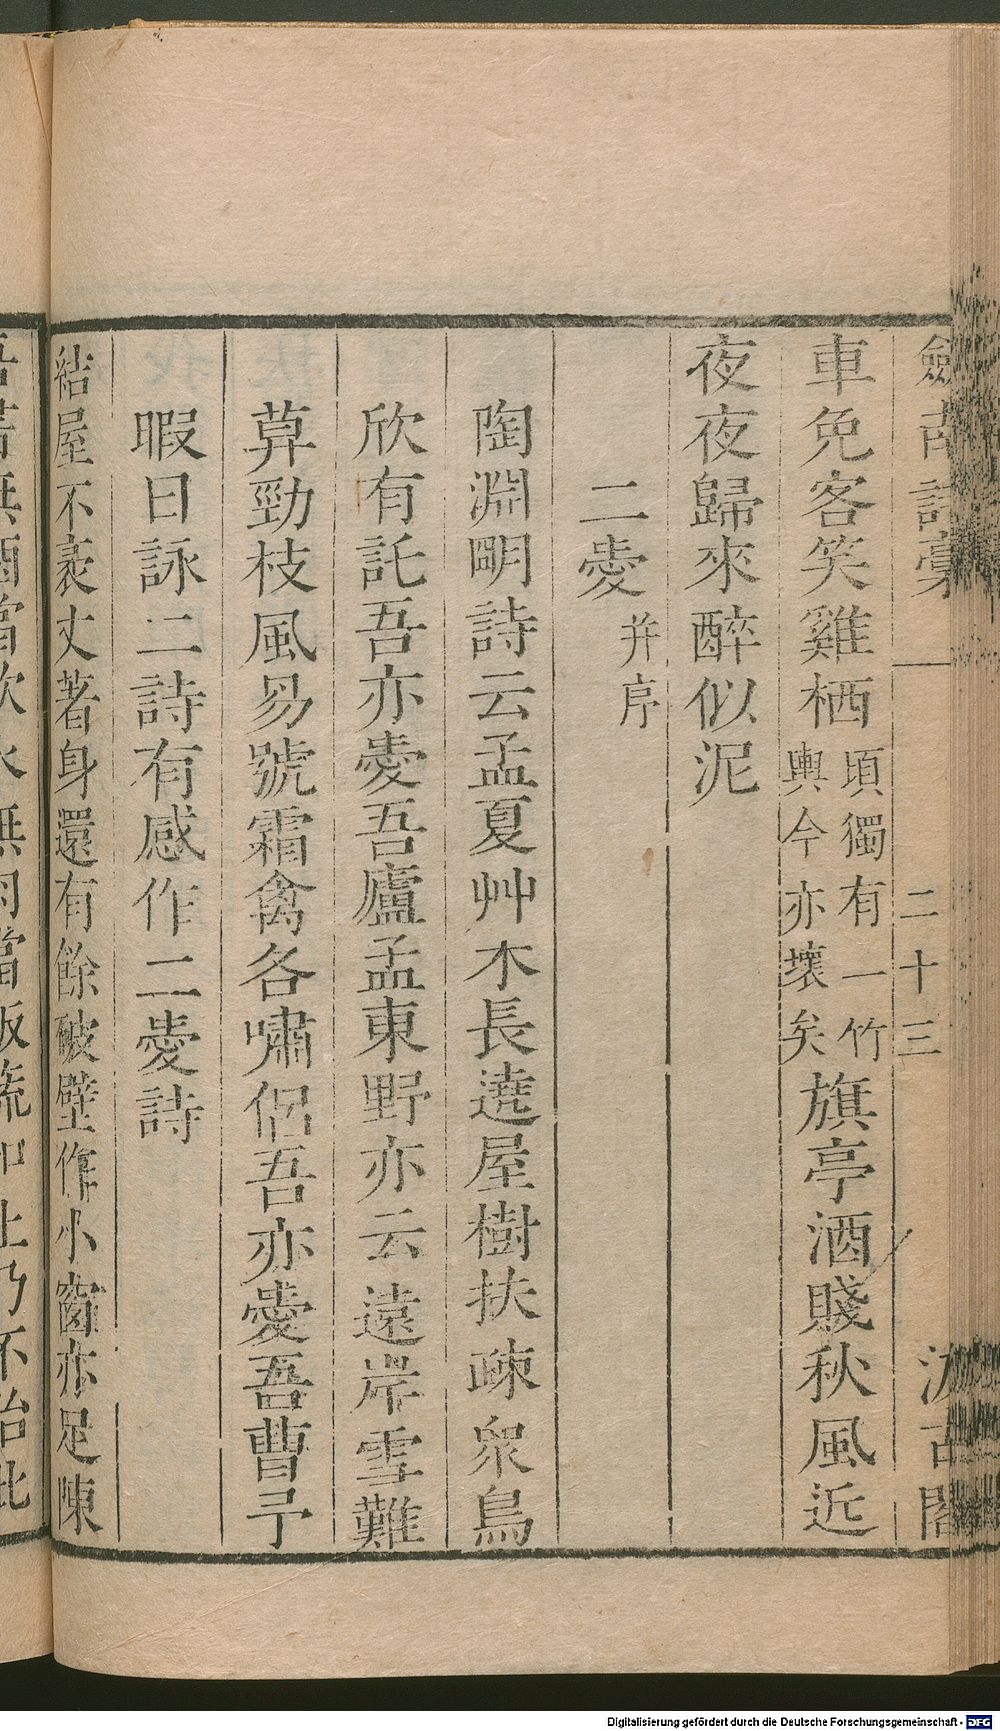 劒南詩藁 二十三 汲古閣
車免客笑雞栖
頃獨有一竹
輿今亦壞矣
旗亭酒賤秋風近
夜夜歸來醉似泥
二愛
并序
陶淵明詩云孟夏艸木長遶屋樹扶疎衆鳥
欣有託吾亦愛吾廬孟東野亦云遠岸雪難
算勁枝風易號霜禽各嘯侶吾亦愛吾曹予
暇日詠二詩有感作二愛詩
結屋不衺丈著身還有餘破壁作小窗亦足陳
Digitalisierung gefördert durch die Deutsche Forschungsgemeinschaft - DFG